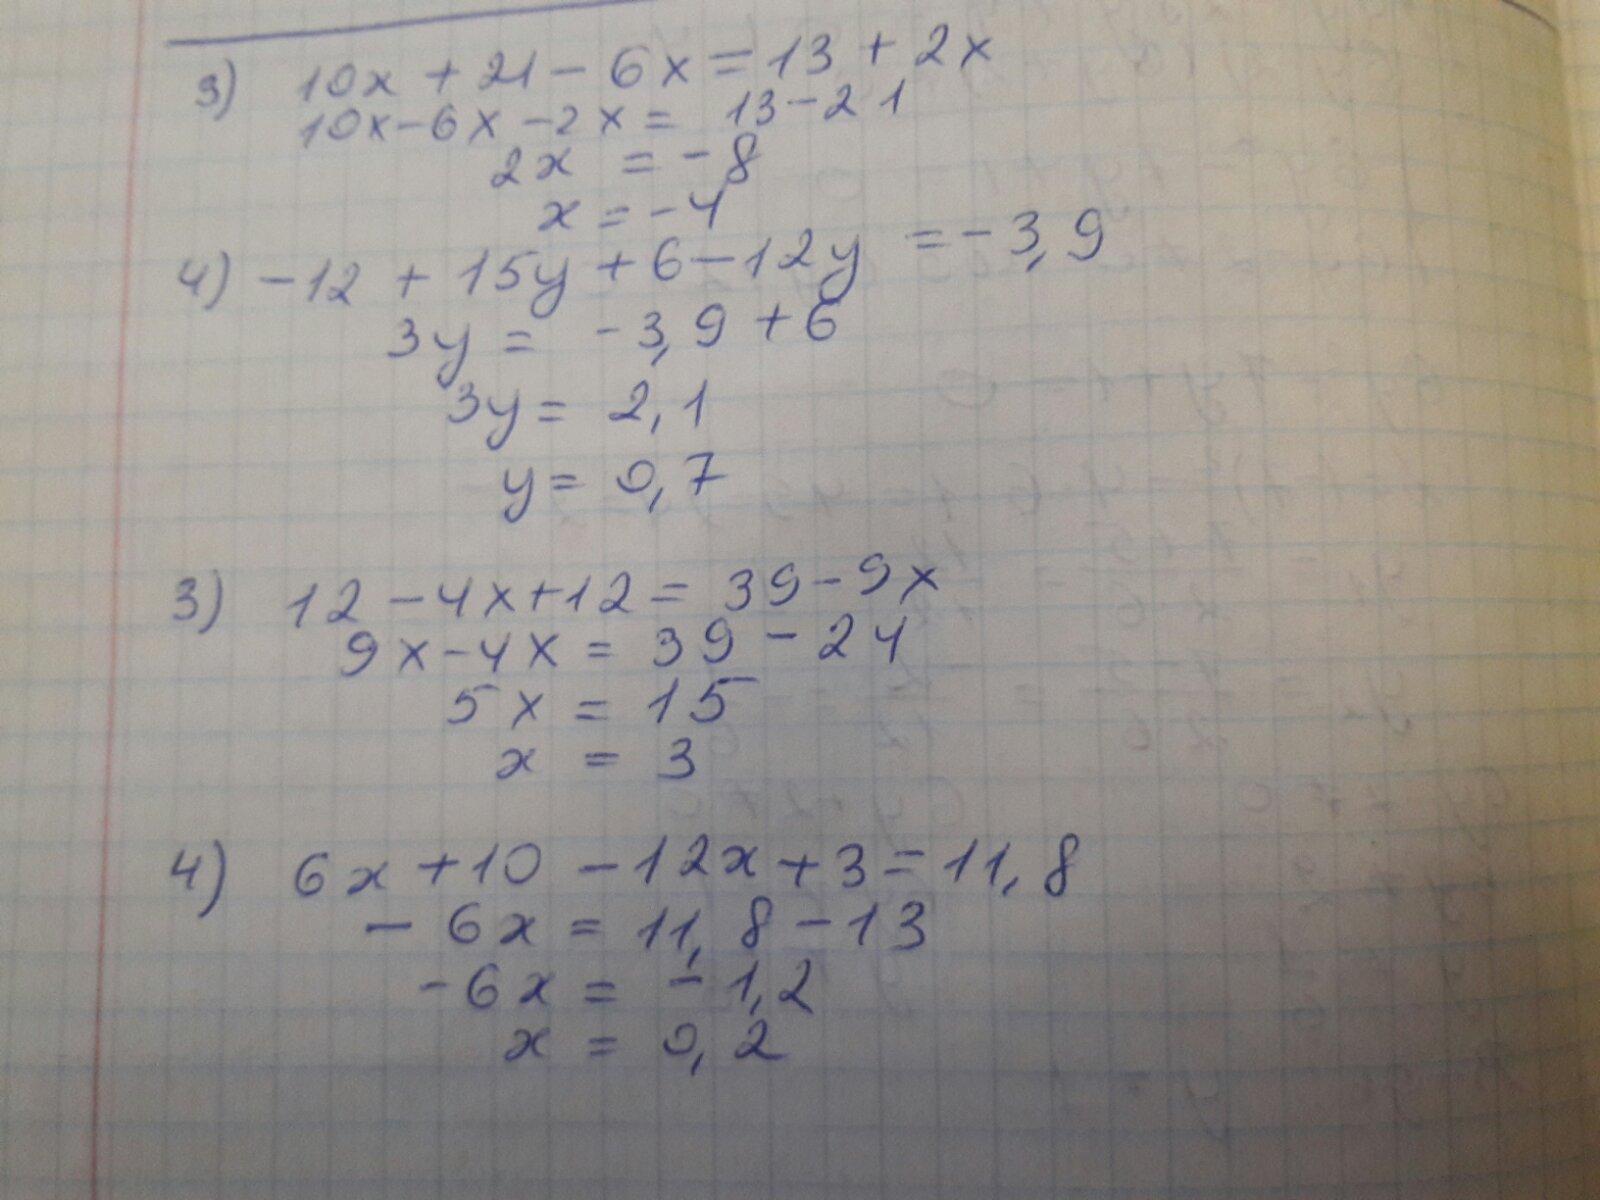 3) 10x + 21 - 6x = 13 + 2x
10x - 6x - 2x = 13 - 21
2x = -8
x = -4
4) -12 + 15y + 6 - 12y = -3,9
3y = -3,9 + 6
3y = 2,1
y = 0,7
3) 12 - 4x + 12 = 39 - 9x
9x - 4x = 39 - 24
5x = 15
x = 3
4) 6x + 10 - 12x + 3 = 11,8
- 6x = 11,8 - 13
-6x = -1,2
x = 0,2